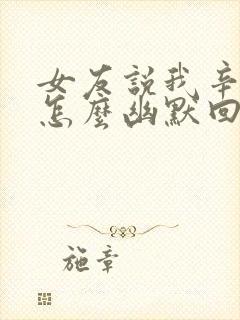 女友説我辛
怎麼幽默回
施章